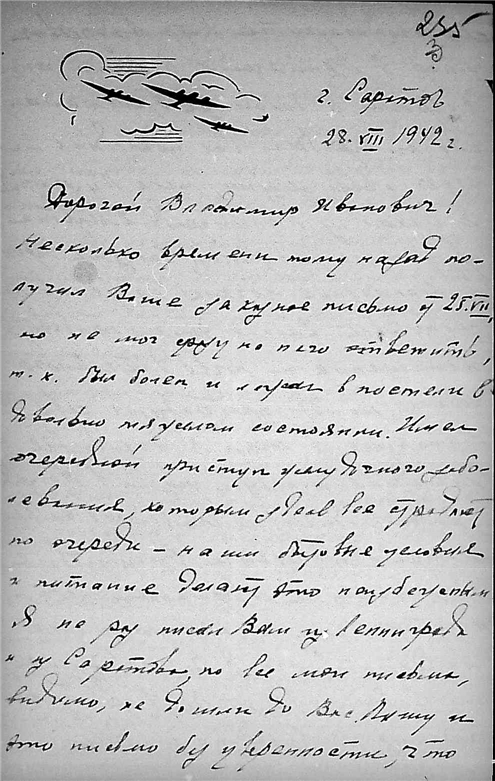 235
г. Саратов
28. VIII 1942 г.
Дорогой Владимир Иванович!
Несколько времени тому назад по-
лучил Ваше заказное письмо от 25.VII,
но не мог сразу на него ответить,
т. к. был болен и лежал в постели в
довольно тяжелом состоянии. Имел
очередной приступ желудочного забо-
левания, которым здесь все страдают
по очереди – наши бытовые условия
и питание делают это неизбежным
Я не раз писал Вам из Ленинграда
и из Саратова, но все мои письма,
видимо, не дошли до Вас. Пишу и
это письмо без уверенности, что